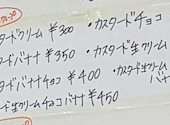 タードクリーム ¥300 ・カスタードチョコ
タードバナナ ¥350 ・カスタード生クリーム
ードバナナチョコ ¥400 ・カスタード生クリーム
バナ
ード生クリームチョコバナナ ¥450